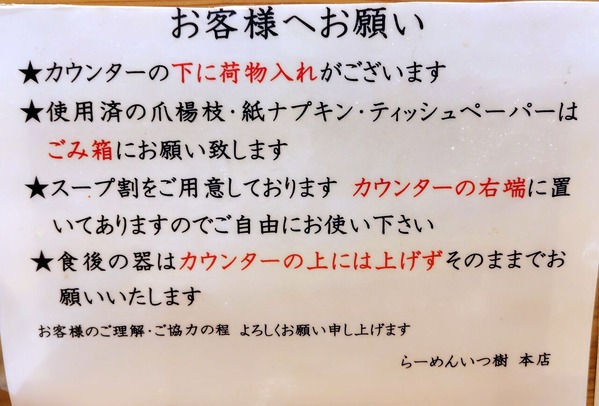 お客様へお願い
★カウンターの下に荷物入れがございます
★使用済の爪楊枝・紙ナプキン・ティッシュペーパーは
ごみ箱にお願い致します
★スープ割をご用意しております カウンターの右端に置
いてありますのでご自由にお使い下さい
★食後の器はカウンターの上には上げずそのままでお
願いいたします
お客様のご理解・ご協力の程 よろしくお願い申し上げます
らーめんいつ樹 本店